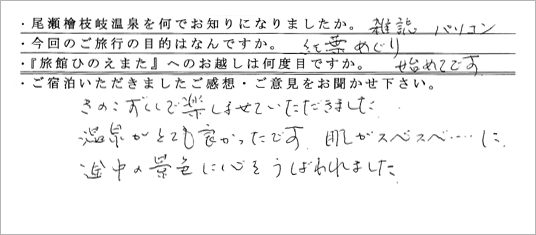 ・尾瀬檜枝岐温泉を何でお知りになりましたか。 雑誌 パソコン
・今回のご旅行の目的はなんですか。 紅葉めぐり
・『旅館ひのえまた』へのお越しは何度目ですか。 始めてです
・ご宿泊いただきましたご感想・ご意見をお聞かせ下さい。
きのこずくしで楽しませていただきました
温泉がとても良かったです 肌がスベスベ……に
途中の景色に心をうばわれました